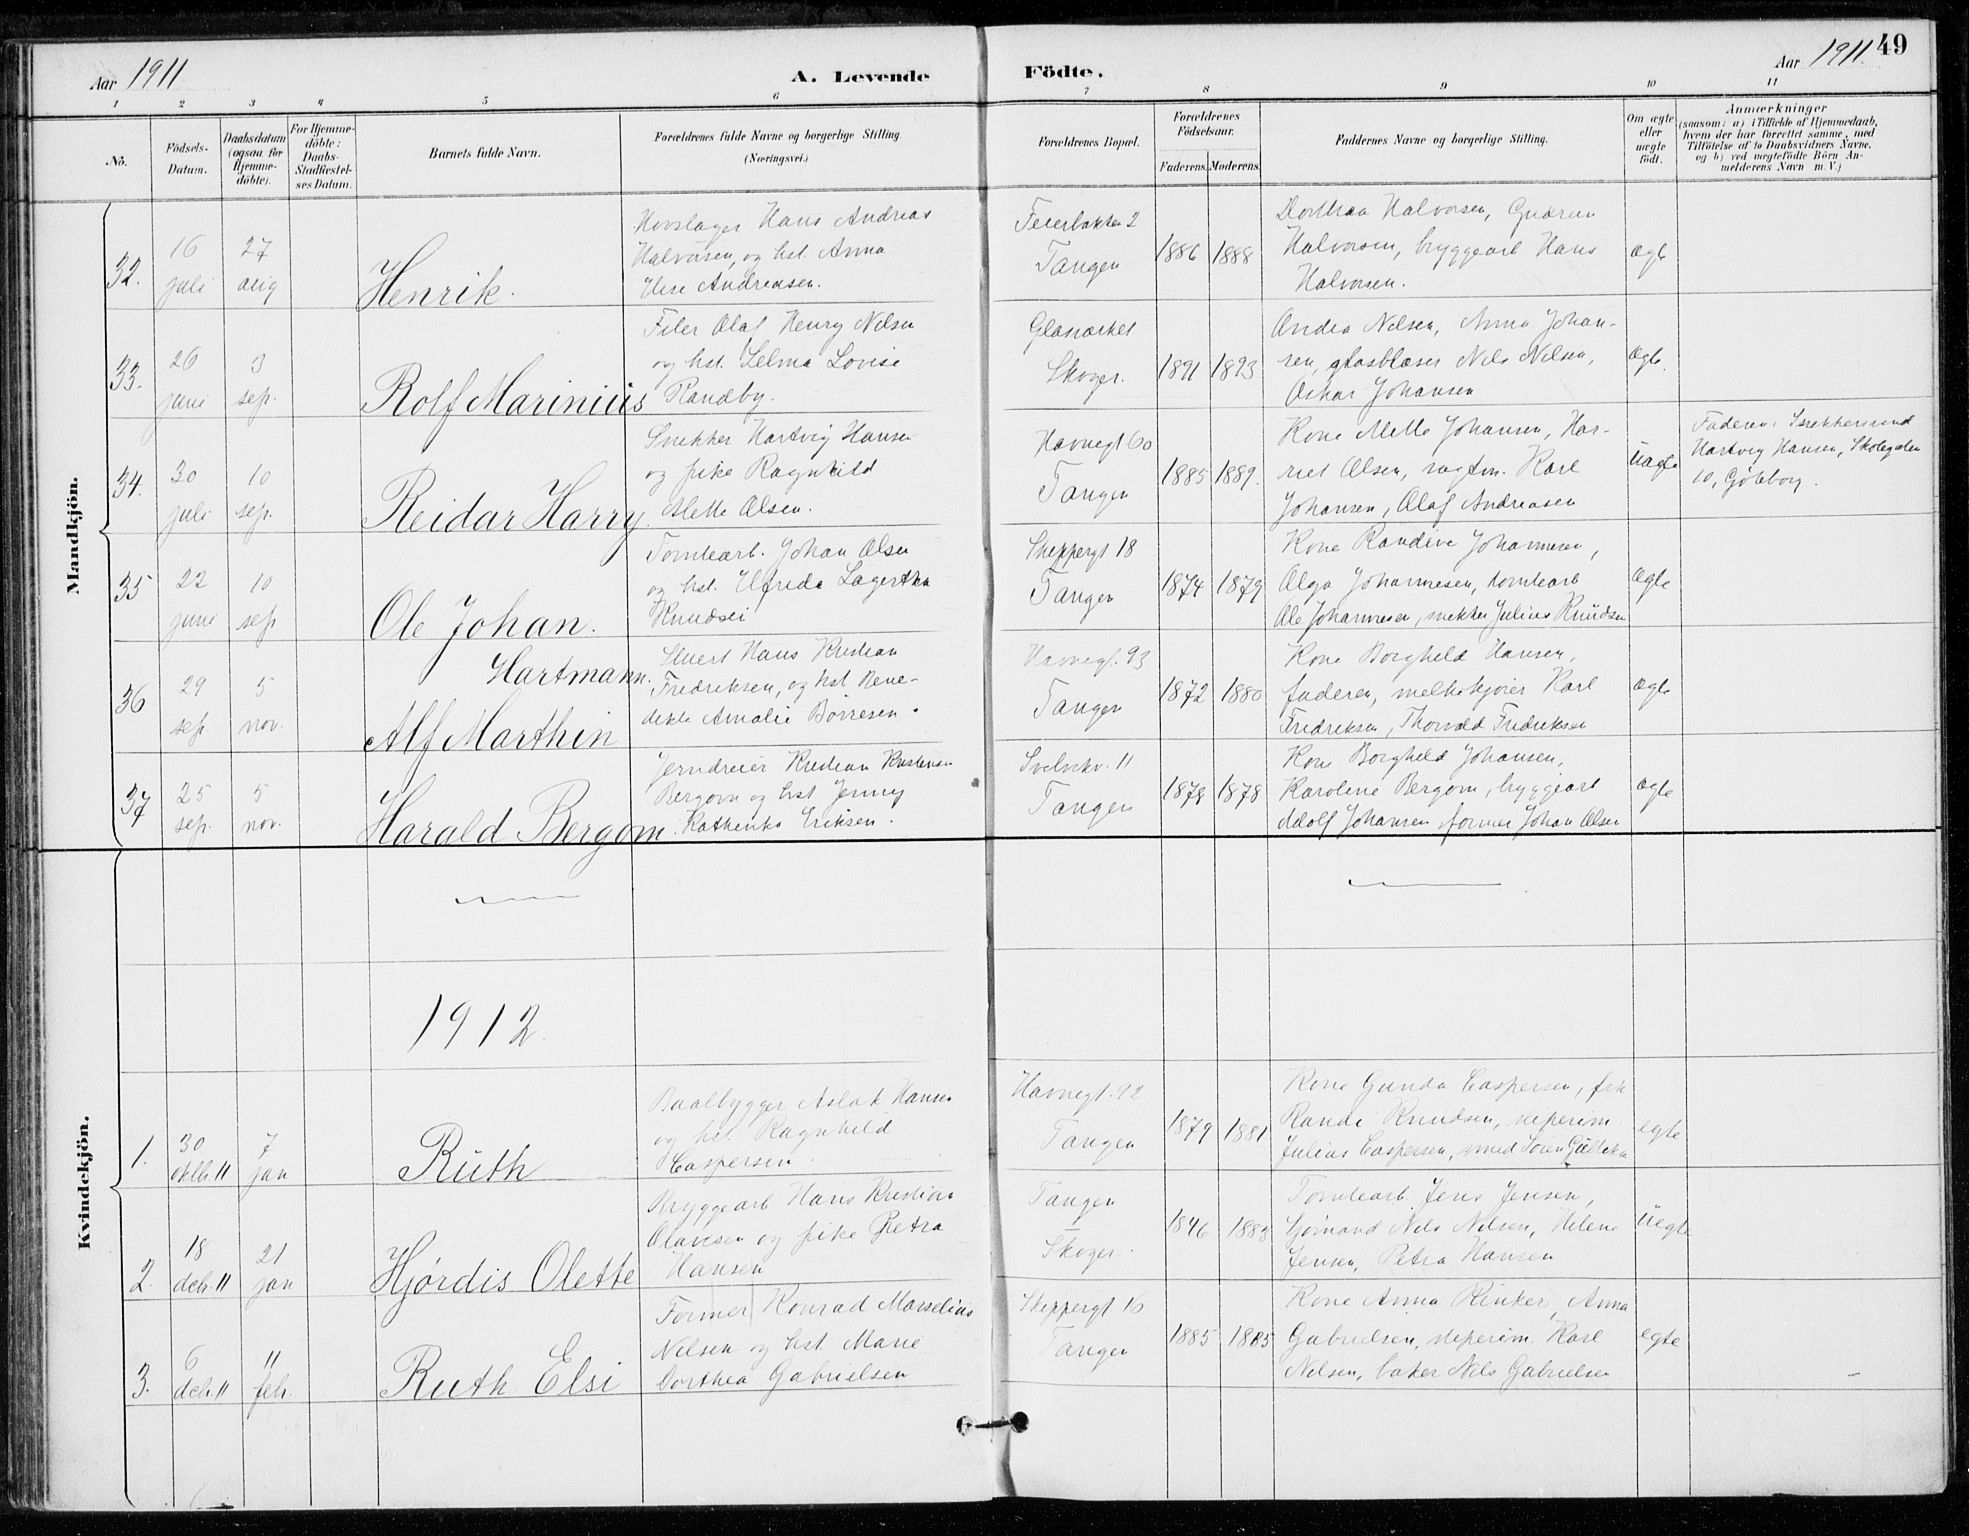 Aar 1911
A. Levende
Födte.
Aar 1911.
49
1 2 3 4 5 6 7 8 9 10 11
No.
Födsels-
Datum.
Daabsdatum
(ogsaa for
Hjemme-
döbte).
For Hjemme-
döbte:
Daabs-
Stadfæstel-
ses Datum.
Barnets fulde Navn.
Forældrenes fulde Navne og borgerlige Stilling.
(Næringsvei.)
Forældrenes Bopæl.
Forældrenes
Födselsaar.
Faderens. Moderens.
Faddernes Navne og borgerlige Stilling.
Om ægte
eller
uægte
födt.
Anmærkninger
(saasom: a) i Tilfælde af Hjemmedaab,
hvem der har forrettet samme, med
Tilföielse af to Daabsvidners Navne,
og b) ved uægtefödte Börn An-
melderens Navn m. V.)
Mandkjön.
32.
16
juli
27
aug
Henrik.
Hovslager Hans Andreas
Halvorsen, og hst. Anna
Andreasen.
Feierbakken 2
Tangen
1886
1888
Dorthea Halvorsen, Gudrun
Halvorsen, bryggearb Hans
Halvorsen.
ægte
33.
26
juni
3
sep.
Rolf Marinius
Filer Olaf Henry Nilsen
og hst. Selma Lovise
Randby.
Glasværket
Skoger.
1891
1893
Andrea Nelsen, Anna Johan-
sen, glasblaser Nils Nilsen,
Oskar Johansen
ægte.
34.
30
juli
10
sep.
Reidar Harry.
Snekker Hartvig Hansen
og pike Ragnhild
Mette Olsen.
Havnegt 60
Tangen
1885
1889.
Kone Mette Johansen, Har-
riet Olsen, vogtm. Karl
Johansen, Olaf Andreasen
uægte
Faderen: Snekkersvend
Hartvig Hansen, Skolegaten
10, Göteborg.
35
22
juni
10
sep
Ole Johan.
Tomtearb. Johan Olsen
og hst. Alfrida Lagertha
Knudsen
Skippergt 18
Tangen
1874
1879
Kone Randine Johannesen,
Olga Johannesen, tomtearb
Ole Johannesen, snekker Julius Knudsen
ægte
36
29
sep
5
nov.
Hartmann.
Alf Marthin
Stuert Hans Kristian
Fredriksen, og hst Bene-
dikte Amalie Børresen.
Havnegt. 93
Tangen
1872
1880
Kone Borghild Hansen,
faderen, melkekjører Karl
Fredriksen, Thorvald Fredriksen
ægte
37
25
sep.
5
nov.
Harald Bergom.
Jerndreier Kristian Kristensen
Bergom og hst. Jenny
Kathinka Eriksen.
Svelvikv. 11
Tangen
1878
1878
Kone Borghild Johansen,
Karoline Bergom, bryggearb
Adolf Johansen, former Johan Olsen
ægte
1912.
Kvindekjön.
1.
30
oktbr 11
7
jan
Ruth
Baatbygger Aslak Hansen
og hst. Ragnhild
Caspersen.
Havnegt. 92
Tangen
1879
1881
Kone Gunda Caspersen, frk
Randi Knudsen, skiperim.
Julius Caspersen, smed Soren
egte
2.
18
deb. 11
21
jan
Hjørdis Olette
Bryggearb Hans Kristian
Olavesen og pike Petra
Hansen
Tangen
Skoger.
1846
1883
Tomtearb. Jens Jensen,
sjømand Nils Nilsen, Helene
Jensen, Petra Hansen
uegte
3.
6
deb. 11
11
feb.
Ruth Elsi
Former Konrad Marselius
Nilsen og hst. Marie
Dorthea Gabrielsen
Skippergt 16
Tangen
1885
1885
Kone Anna Rinker, Anna
Gabrielsen, skiperim. Karl
Nilsen, baker Nils Gabrielsen
egte